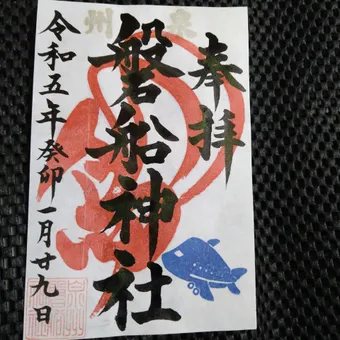 泉州
奉拝
磐船神社
令和五年癸卯一月廿九日